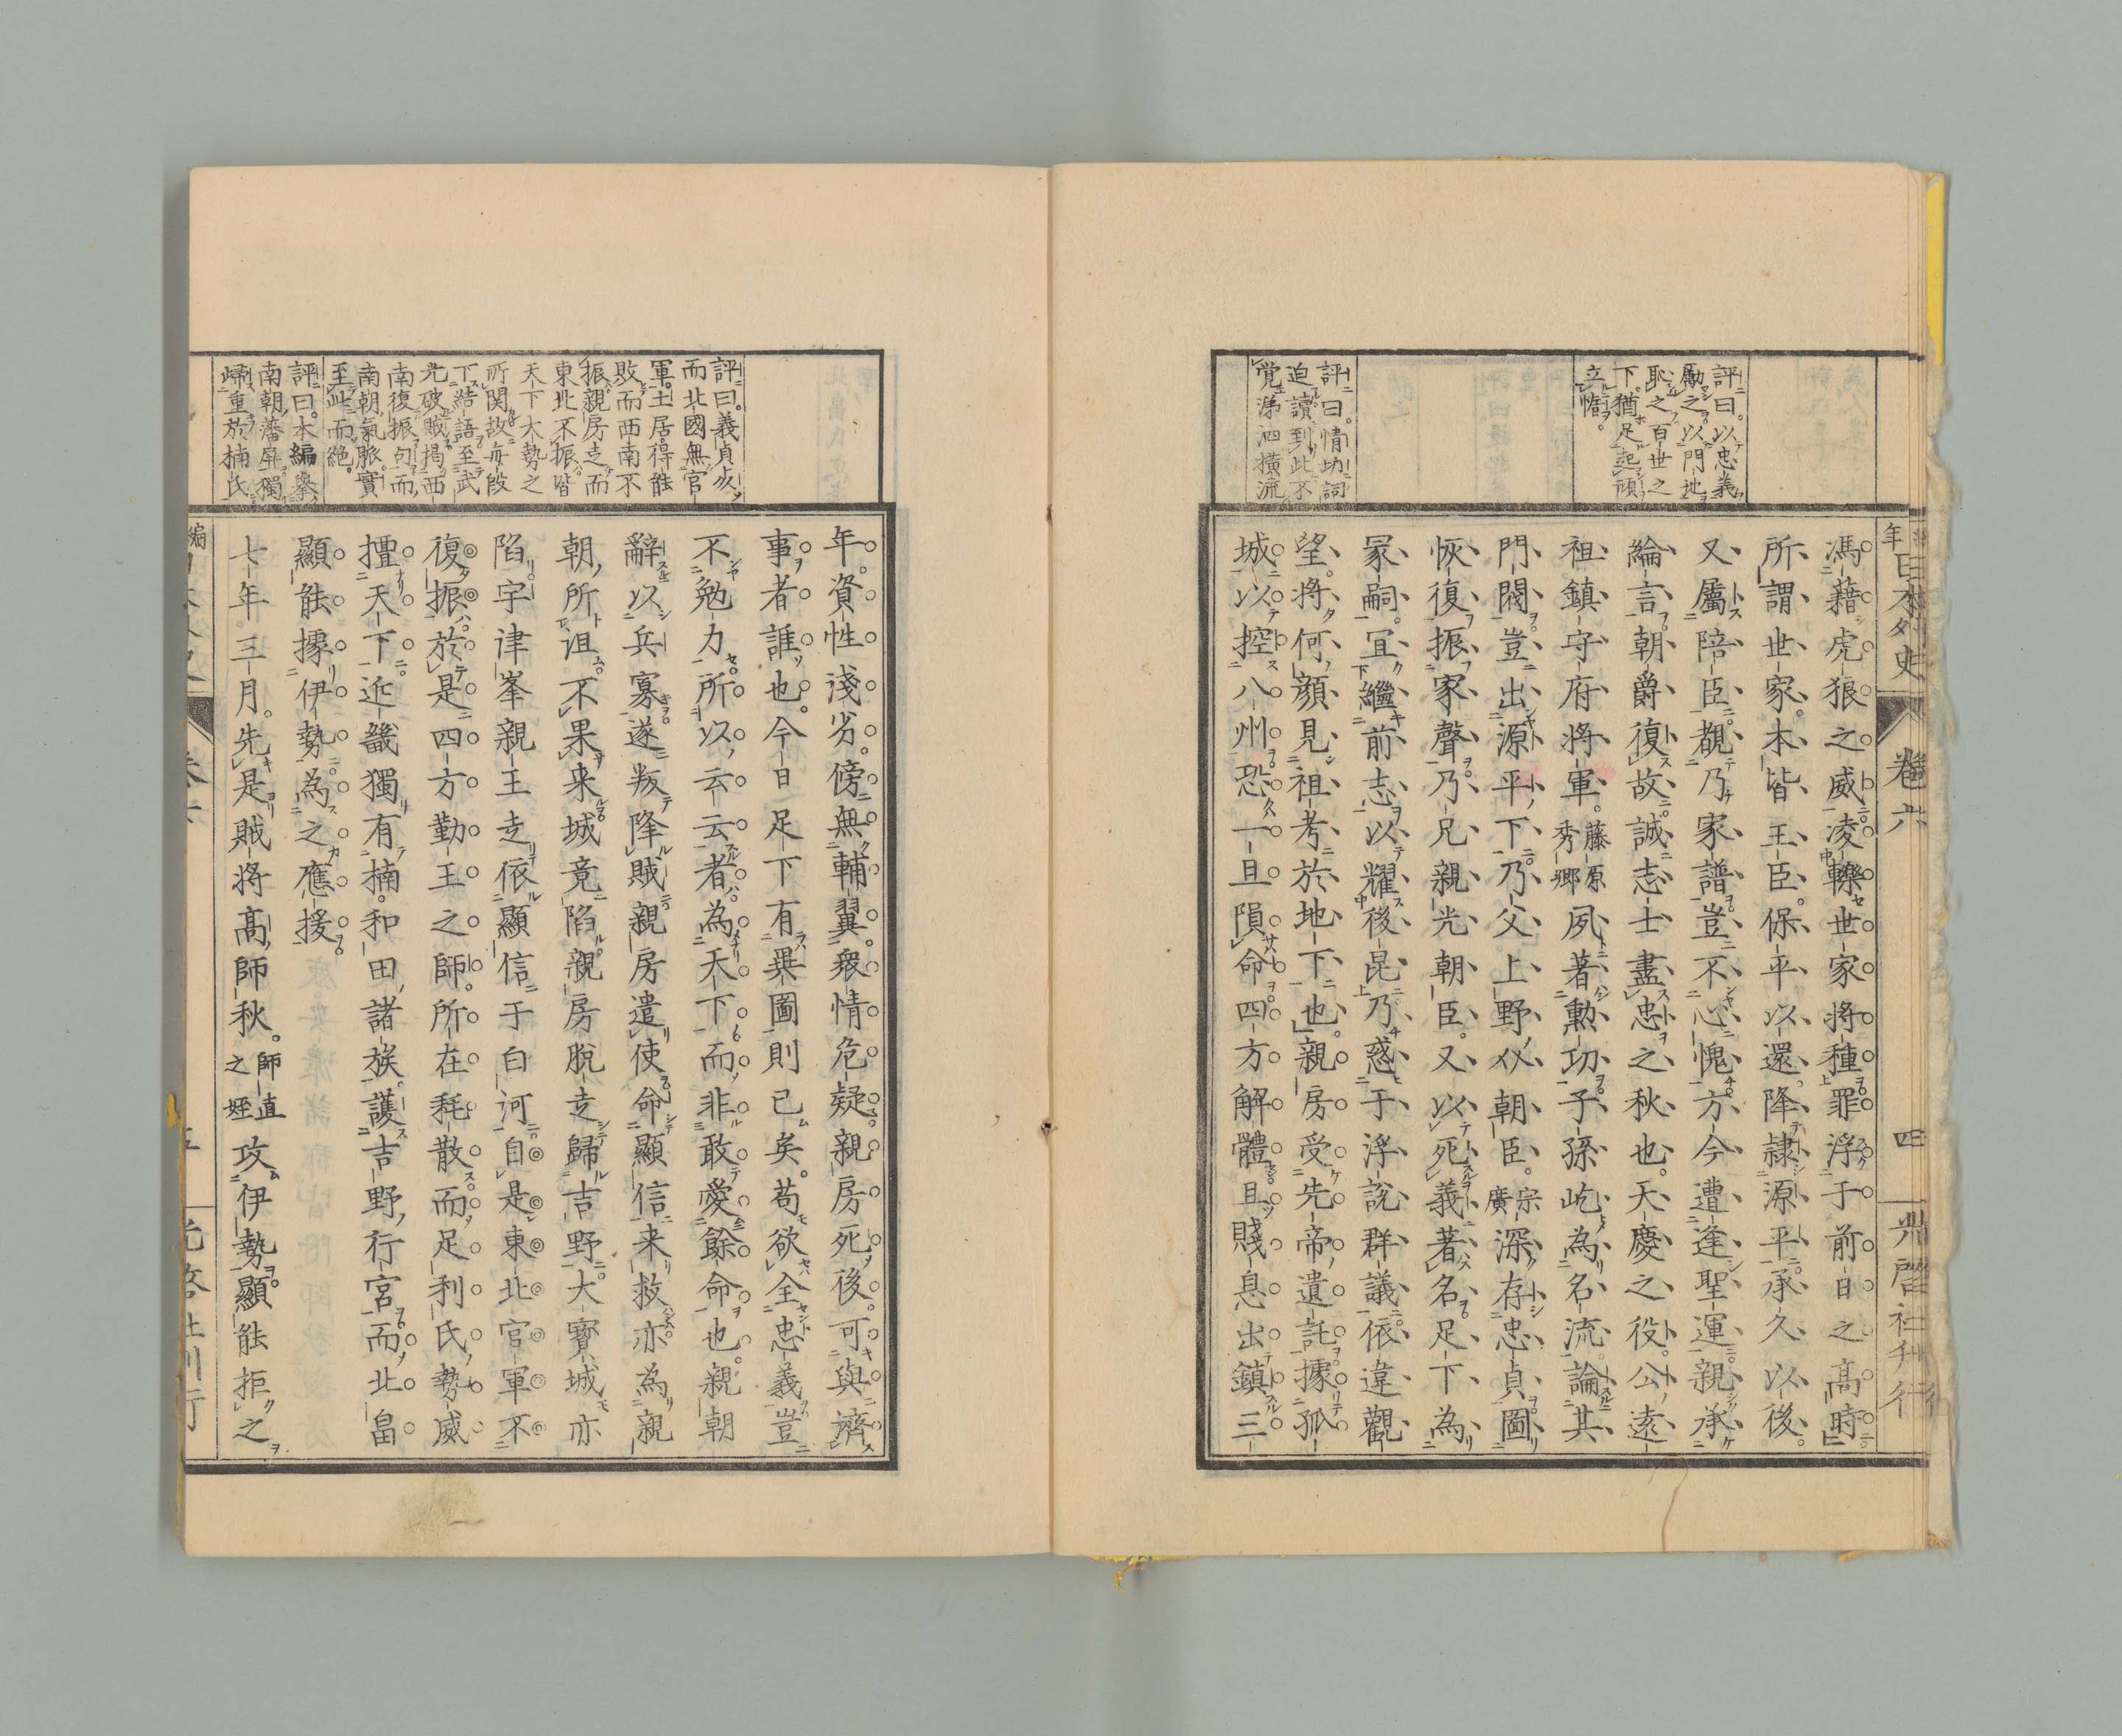 年
日本外史
卷六
四
光啓社刊行
評曰。以忠義
勵之。以門地
恥之。百世之
下。猶足起頑
立惰。
評曰。情切詞
迫。讀到此不
覚涕泗橫流
馮藉虎狼之威。凌轢世家將種罪浮于前日之高時
所謂世家。本皆王臣。保平以還。降隷源平。承久以後。
又屬陪臣。覩乃家譜。豈不心愧。方今遭逢聖運。親承
綸言。朝爵復故。誠志士盡忠之秋也。天慶之役。公遠
祖鎮守府將軍。藤原秀郷夙著勲功。子孫屹為名流。論其
門閥。豈出源平下。乃父上野。乃祖朝臣。宗廣深存忠貞。圖
恢復振家聲。乃兄親光朝臣。又以死義著名。足下為
冢嗣。宜繼前志。以耀後昆。乃惑于浮說群議。依違觀
望。將何顔見祖考於地下也。親房受先帝遺託。據孤
城以控八州。恐一旦隕命四方解體。且賤息出鎮三
評曰。義貞歿
而北國無官
軍。土居得能
敗而西南不
振。親房走而
東北不振。皆
天下大勢之
所関。故每段
下結語。至武
光破賊。掲西
南復振句。而
南朝氣脈。實
至此而絶。
評曰。本編擧
南朝藩屏。獨
歸重於楠氏
年。資性淺劣。傍無輔翼。衆情危疑。親房死後。可與濟
事者誰也。今日足下有異圖則已矣。苟欲全忠義。豈
不勉力。所以云云者。為天下而非敢愛餘命也。親朝
辭以兵寡。遂叛降賊。親房遣使命顯信来救。亦為親
朝所沮。不果来。城竟陷。親房脫走歸吉野。大寳城亦
陷。宇津峯親王走依顯信于白河。自是東北官軍不
復振。於是四方勤王之師。所在耗散。而足利氏勢威
擅天下。近畿獨有楠。和田諸族。護吉野行宮。而北畠
顯能據伊勢為之應援。
七年三月。先是賊将高師秋。師直之姪攻伊勢。顯能拒之